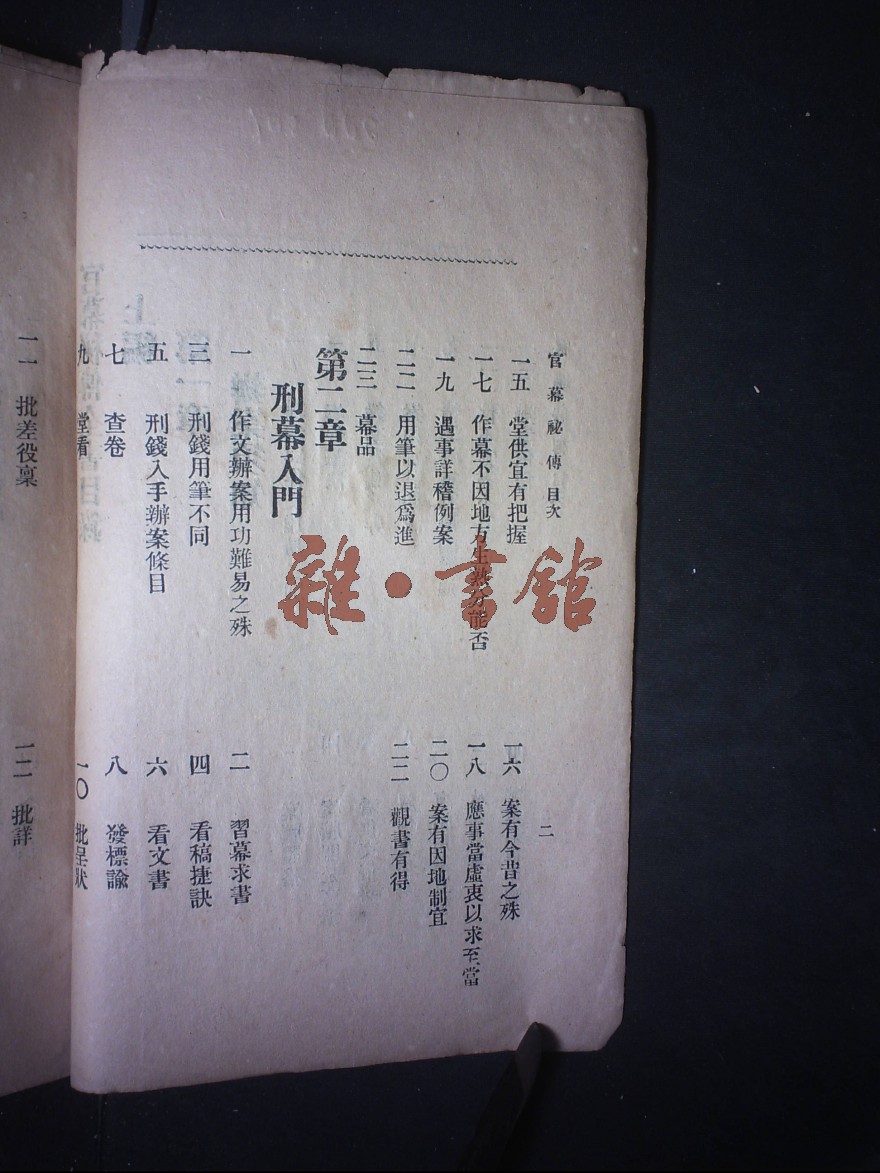 官幕祕傳 目次 二
一五 堂供宜有把握 一六 案有今昔之殊
一七 作幕不因地方生熟分能否 一八 應事當虛衷以求至當
一九 遇事詳稽例案 二〇 案有因地制宜
二一 用筆以退爲進 二二 觀書有得
二三 幕品
第二章
刑幕入門
一 作文辦案用功難易之殊 二 習幕求書
三 刑錢用筆不同 四 看稿捷訣
五 刑錢入手辦案條目 六 看文書
七 查卷 八 發標諭
九 堂看 一〇 批呈狀
一一 批差役稟 一二 批詳
雜·書館